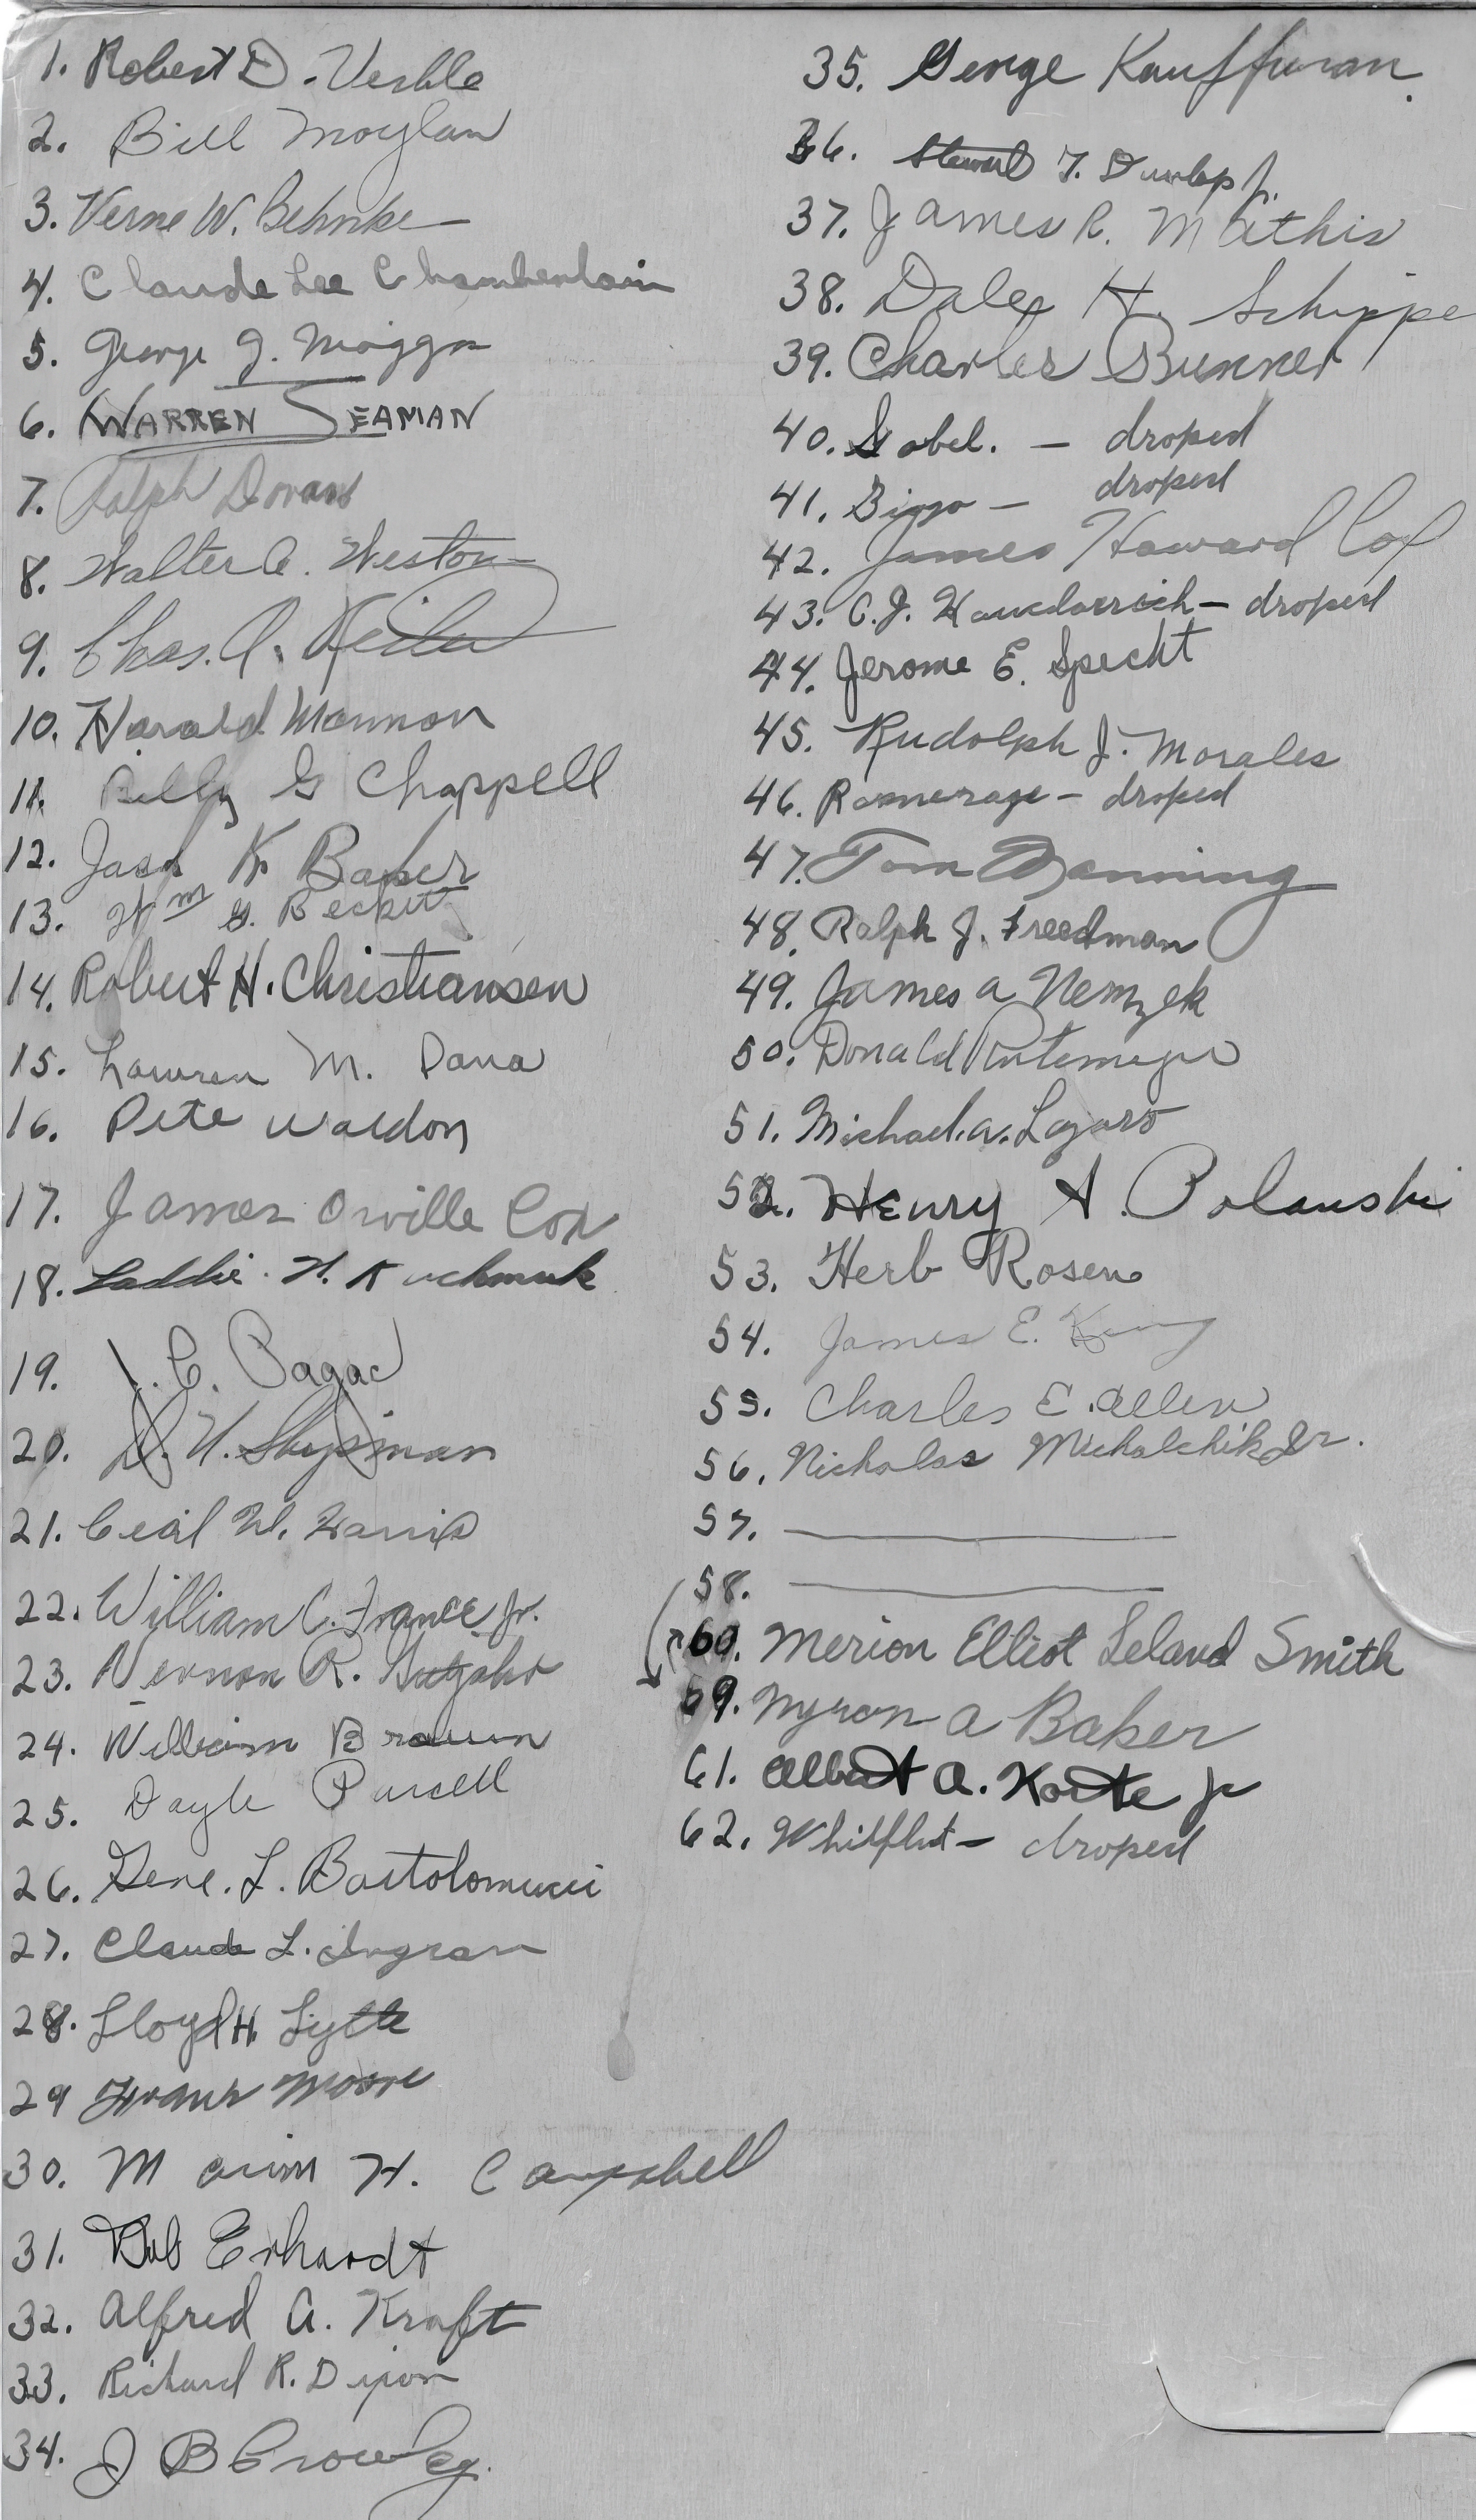 1. Robert D. Verble
2. Bill Moylan
3. Verne W. Behnke
4. Claude Lee Chamberlain
5. George J.
6. WARREN SEAMAN
7. Ralph Dorans
8. Walter C. Weston
9. Chas. A.
10. Harold Mannon
11. Billy G Chappell
12. Jack K. Baker
13. Wm G. Beckett
14. Robert H. Christiansen
15. Lauren M. Dana
16. Pete Waldon
17. James Orville Cox
18. Laddie H. Kuchmuk
19. J. C. Pagac
20. D. H. Shipman
21. Cecil W. Harris
22. William C. France Jr.
23. Vernon R.
24. William Braun
25. Dayle Purcell
26. Gene. L. Bartolomucci
27. Claude L. Ingram
28. Lloyd H. Lytle
29 Frank Moore
30. H. Campbell
31. Bob Erhardt
32. Alfred A. Kraft
33. Richard R. Dixon
34. J B Crowley.
35. George Kauffman.
36. Stewart T. Dunlap Jr.
37. James R. Mathis
38. Dale H. Schippe
39. Charles Bunner
40. Gobel. — droped
41. Bingo — droped
42. James Howard Cox
43. C. J. — droped
44. Jerome E. Specht
45. Rudolph J. Morales
46. — droped
47. Tom Manning
48. Ralph J. Freedman
49. James A Nemzek
50. Donald Rutemeyer
51. Michael. A. Lazaro
52. Henry A. Polanski
53. Herb Rosen
54. James E. King
55. Charles E. Allen
56. Nicholas Michalchik Jr.
57.
58.
60. Merion Elliot Leland Smith
59. Myron A Baker
61. Albert A. Korte Jr
62. — droped